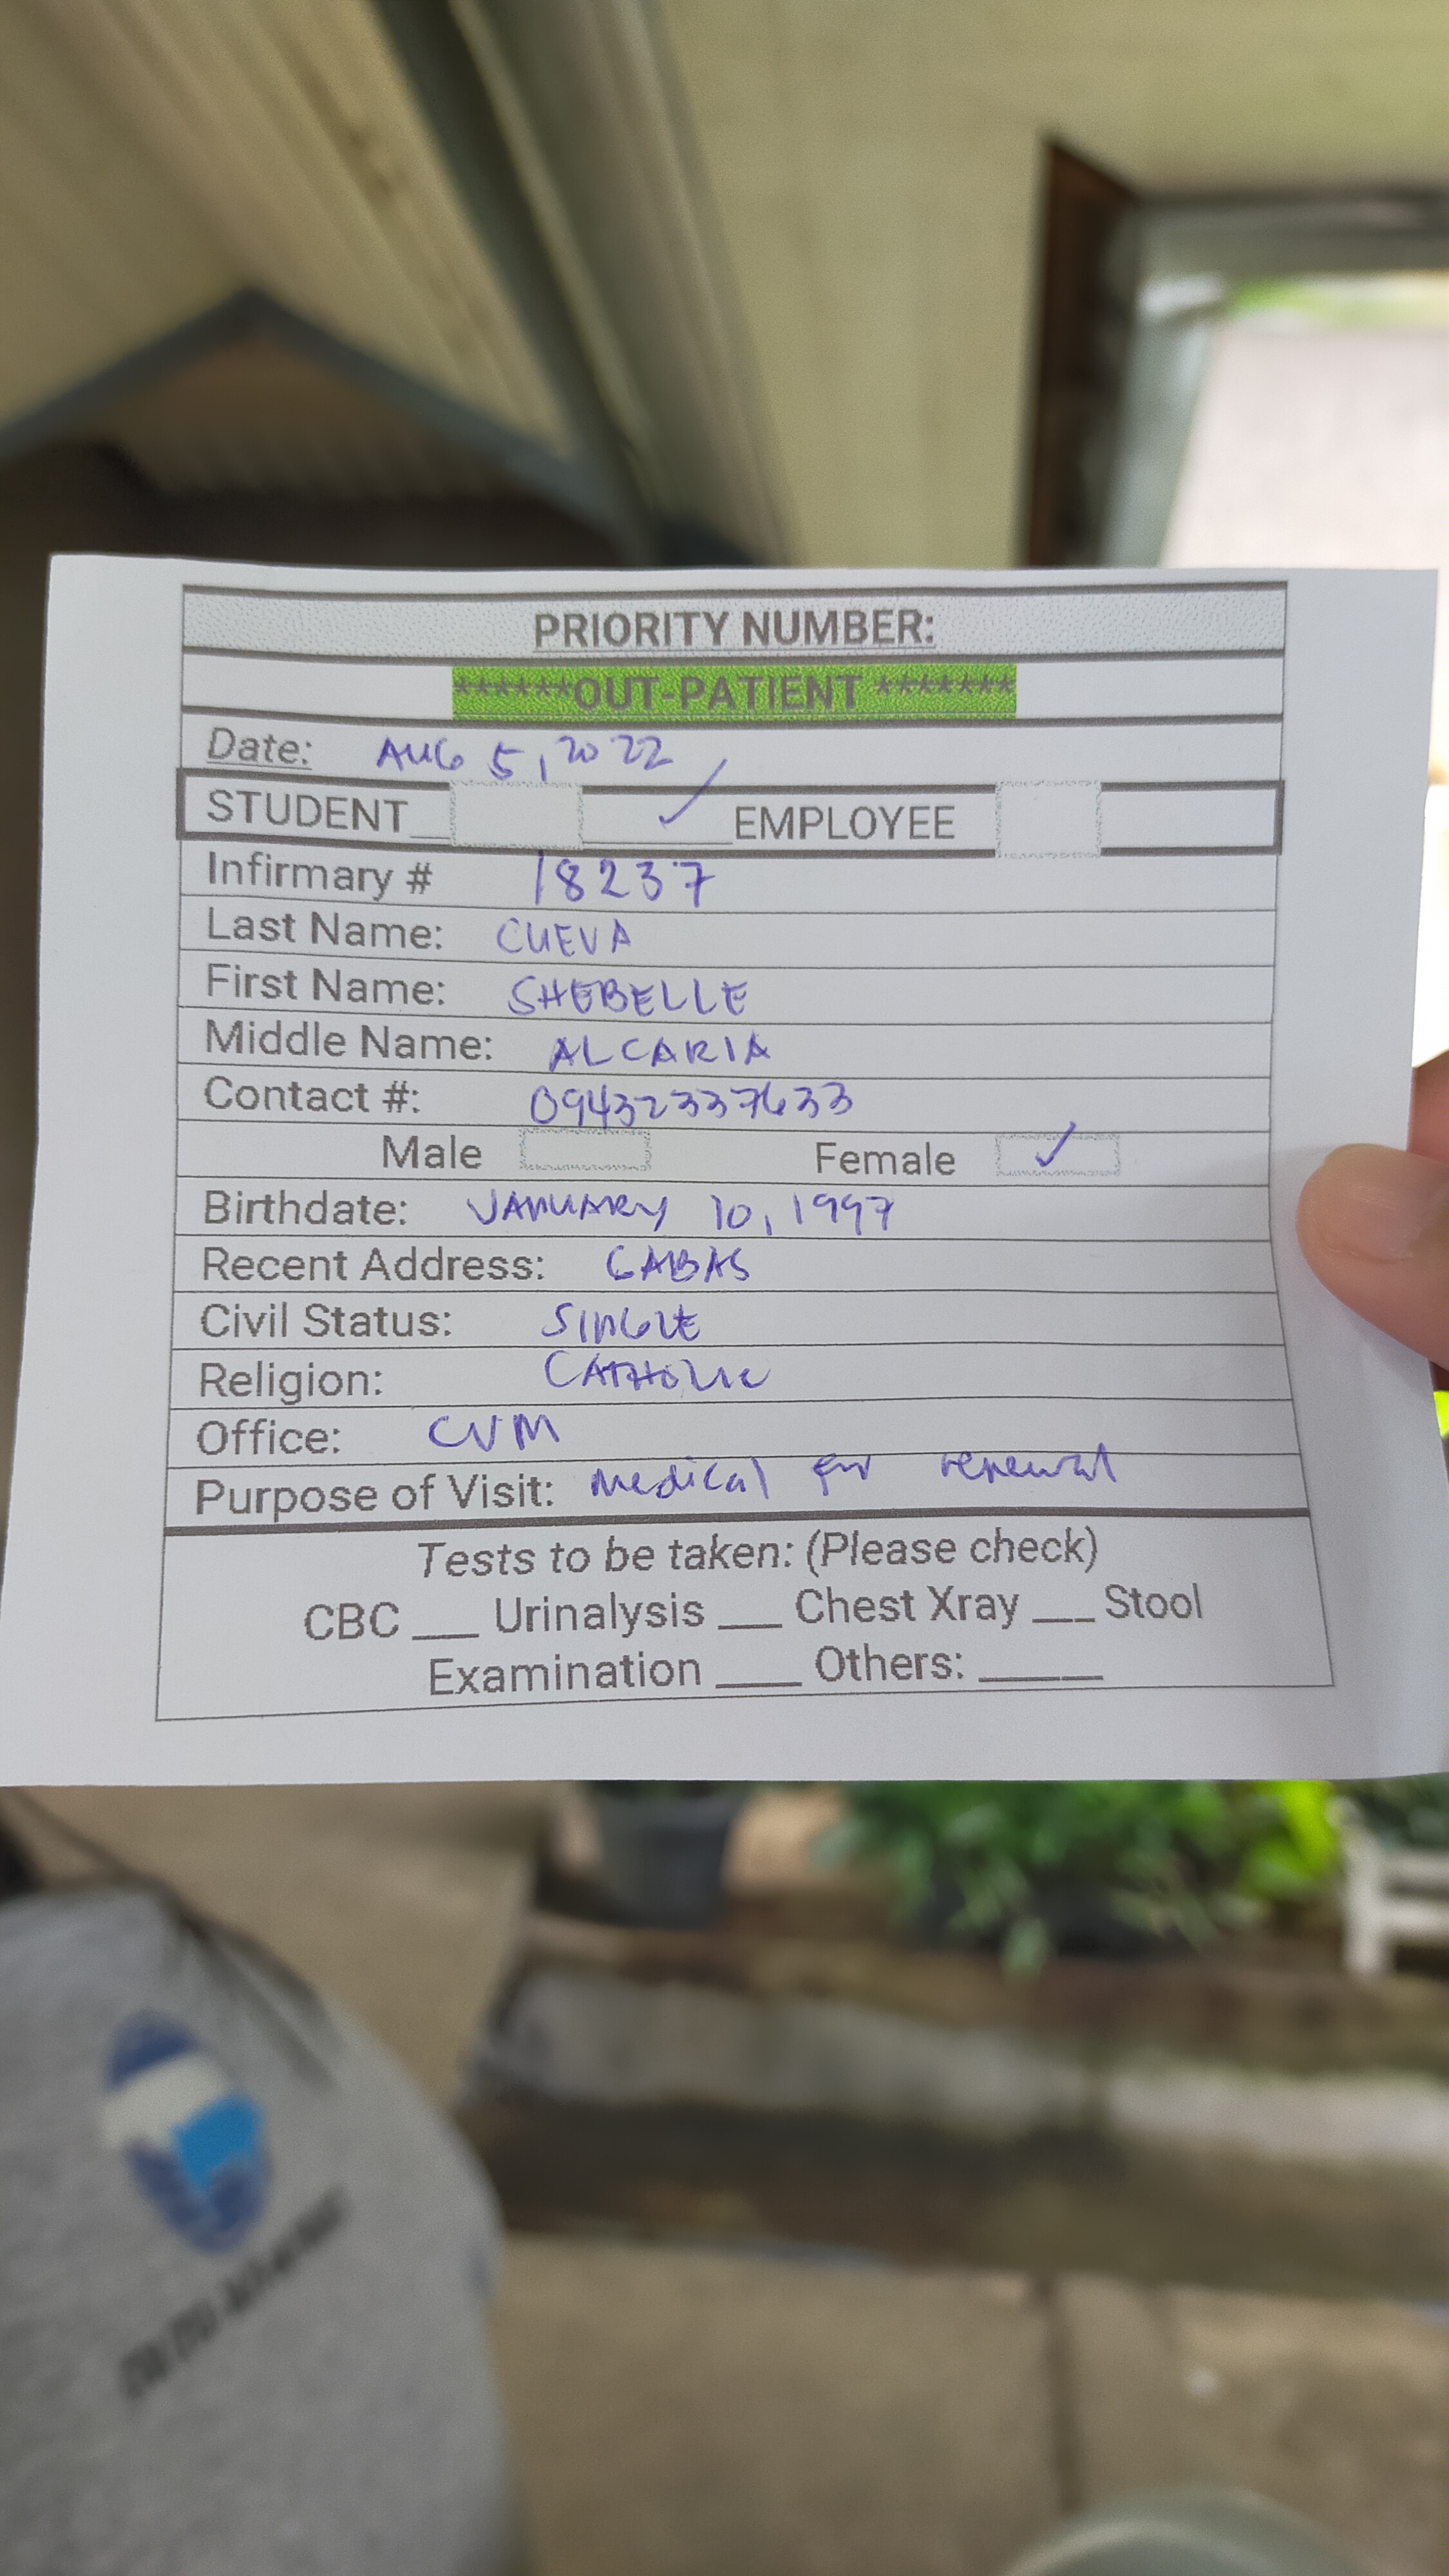 PRIORITY NUMBER:
******OUT-PATIENT *******
Date: AUG 5, 2022
STUDENT__ ✓ ____EMPLOYEE
Infirmary # 18237
Last Name: CUEVA
First Name: SHEBELLE
Middle Name: ALCARIA
Contact #: 09432337633
Male Female ✓
Birthdate: JANUARY 10, 1997
Recent Address: GABAS
Civil Status: SINGLE
Religion: CATHOLIC
Office: CVM
Purpose of Visit: Medical for renewal
Tests to be taken: (Please check)
CBC ___ Urinalysis ___ Chest Xray ___ Stool
Examination ____ Others: ______